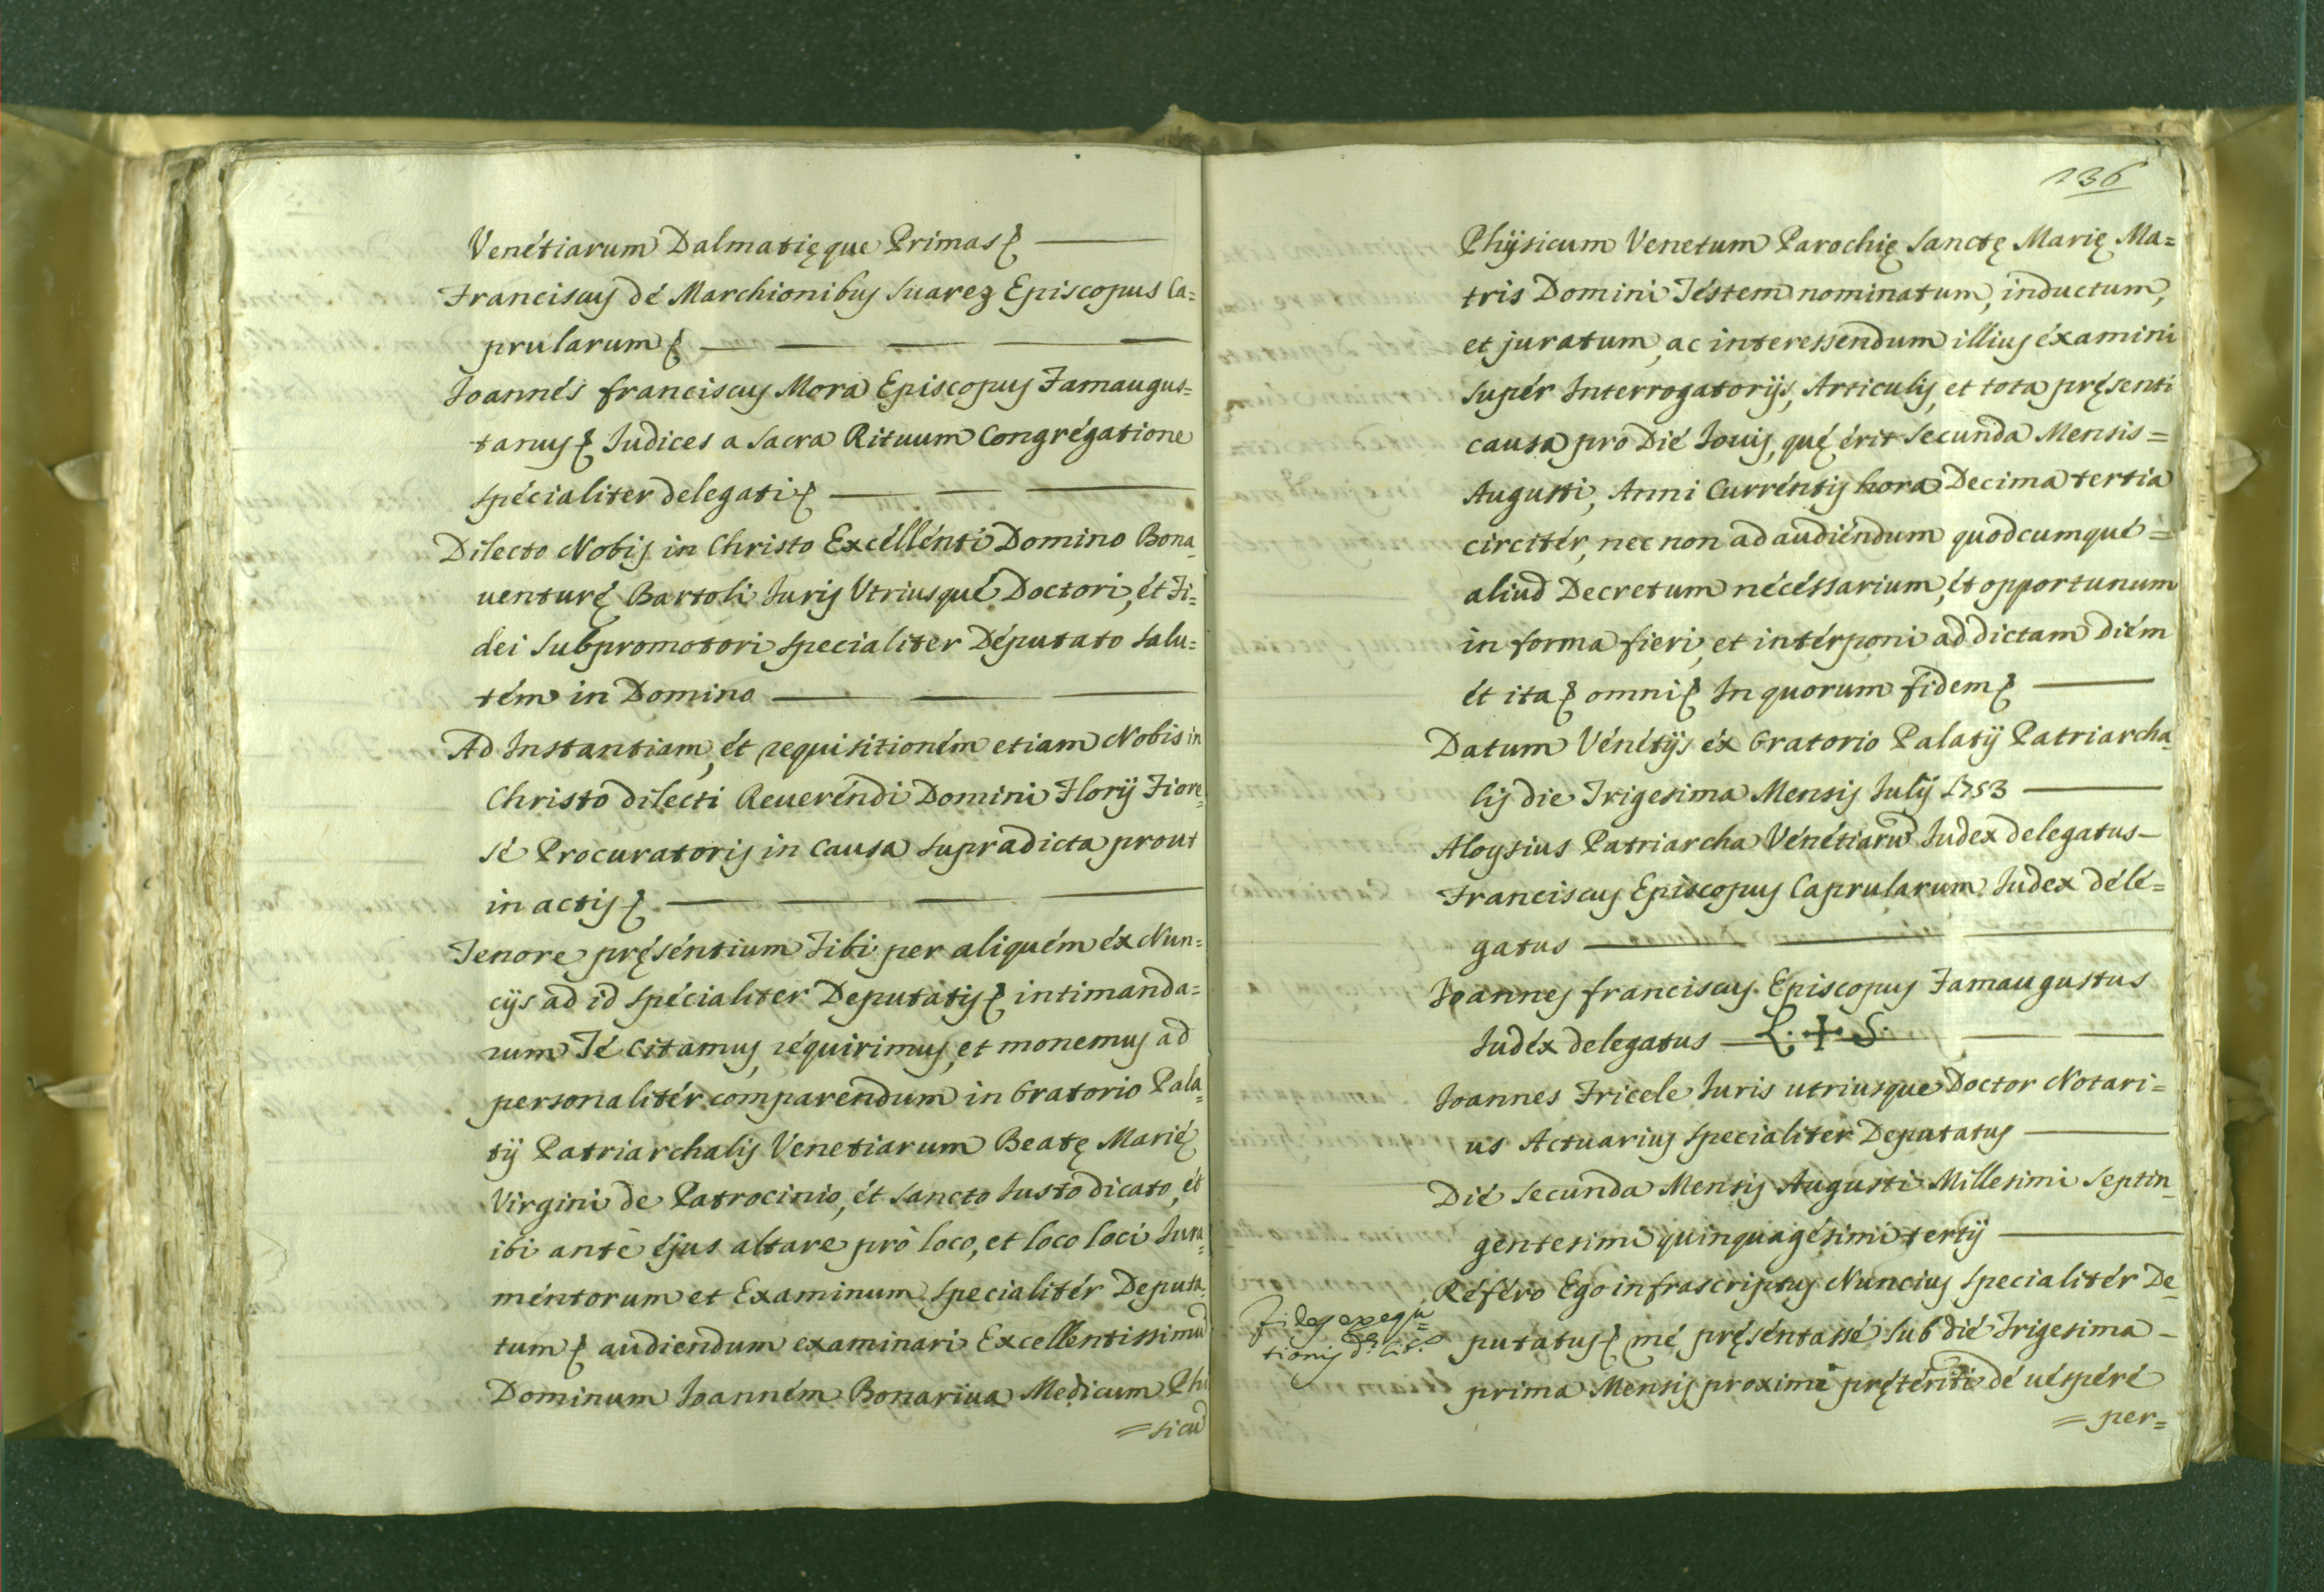 Venétiarum Dalmatięque Primas &
Franciscus dé Marchionibus Suarez Episcopus Ca=
prularum &
Joannés franciscus Mora Episcopus Famaugus=
tanus & Judices a Sacra Rituum Congrégatione
spécialiter delegati &
Dilecto Nobis in Christo Excéllénti Domino Bona=
uenturę Bartoli Juris Vtriusqué Doctori, ét Fi=
dei Subpromotori specialiter Députato Salu=
tém in Domino
Ad Instantiam, ét requisitioném etiam Nobis in
Christo dilecti Reueréndi Domini Florij Fiore=
sé Procuratoris in Causa supradicta prout
in actis &
Tenore pręséntium Tibi per aliquém éx Nun=
cijs ad id spécialiter Deputatis & intimanda=
rum Té Citamus, réquirimus, et monemus ad
personalitér comparendum in Oratorio Pala=
tij Patriarchalis Venetiarum Beatę Marię
Virgini de Patrocinio, ét Sancto Justo dicato, ét
ibi antè éjus altare prò loco, et loco loci Jura=
méntorum et Examinum specialitér Deputa=
tum & audiendum examinari Excellentissimũ
Dominum Joanném Bonariua Medicum Phi
=sicũ
136
Phÿsicum Venetum Parochię Sanctę Marię Ma=
tris Domini Téstem nominatum, inductum,
et juratum, ac interessendum illius éxamini
supér Interrogatorijs, Articulis, et tota pręsenti
causa pro Dié Jouis, quę érit Secunda Mensis=
Augusti, Anni Curréntis hora Decima tertia
circitér, nec non ad audiéndum quodcumqué=
aliud Decretum nécéssarium, ét opportunum
in forma fieri, et intérponi ad dictam diém
ét ita & omni & In quorum fidem &
Datum Vénétijs éx Oratorio Palatij Patriarcha=
lis die Trigesima Mensis Julij 1753
Aloysius Patriarcha Vénétiarũ Judex delegatus
Franciscus Episcopus Caprularum Judex délé=
gatus
Joannes franciscus Episcopus Famaugustus
Judéx delegatus L. + S.
Joannes Fricele Juris utriusque Doctor Notari=
us Actuarius specialiter Deputatus
Dié Secunda Mensis Augusti Millesimi Septin=
gentesimi quinquagésimi tertij
Référo Ego infrascriptus Nuncius specialitér De=
Fides exequ=
tionis
putatus & mé pręséntassé sub dié Trigesima
prima Mensis proximi pręteriti dé uéspéré
=per=